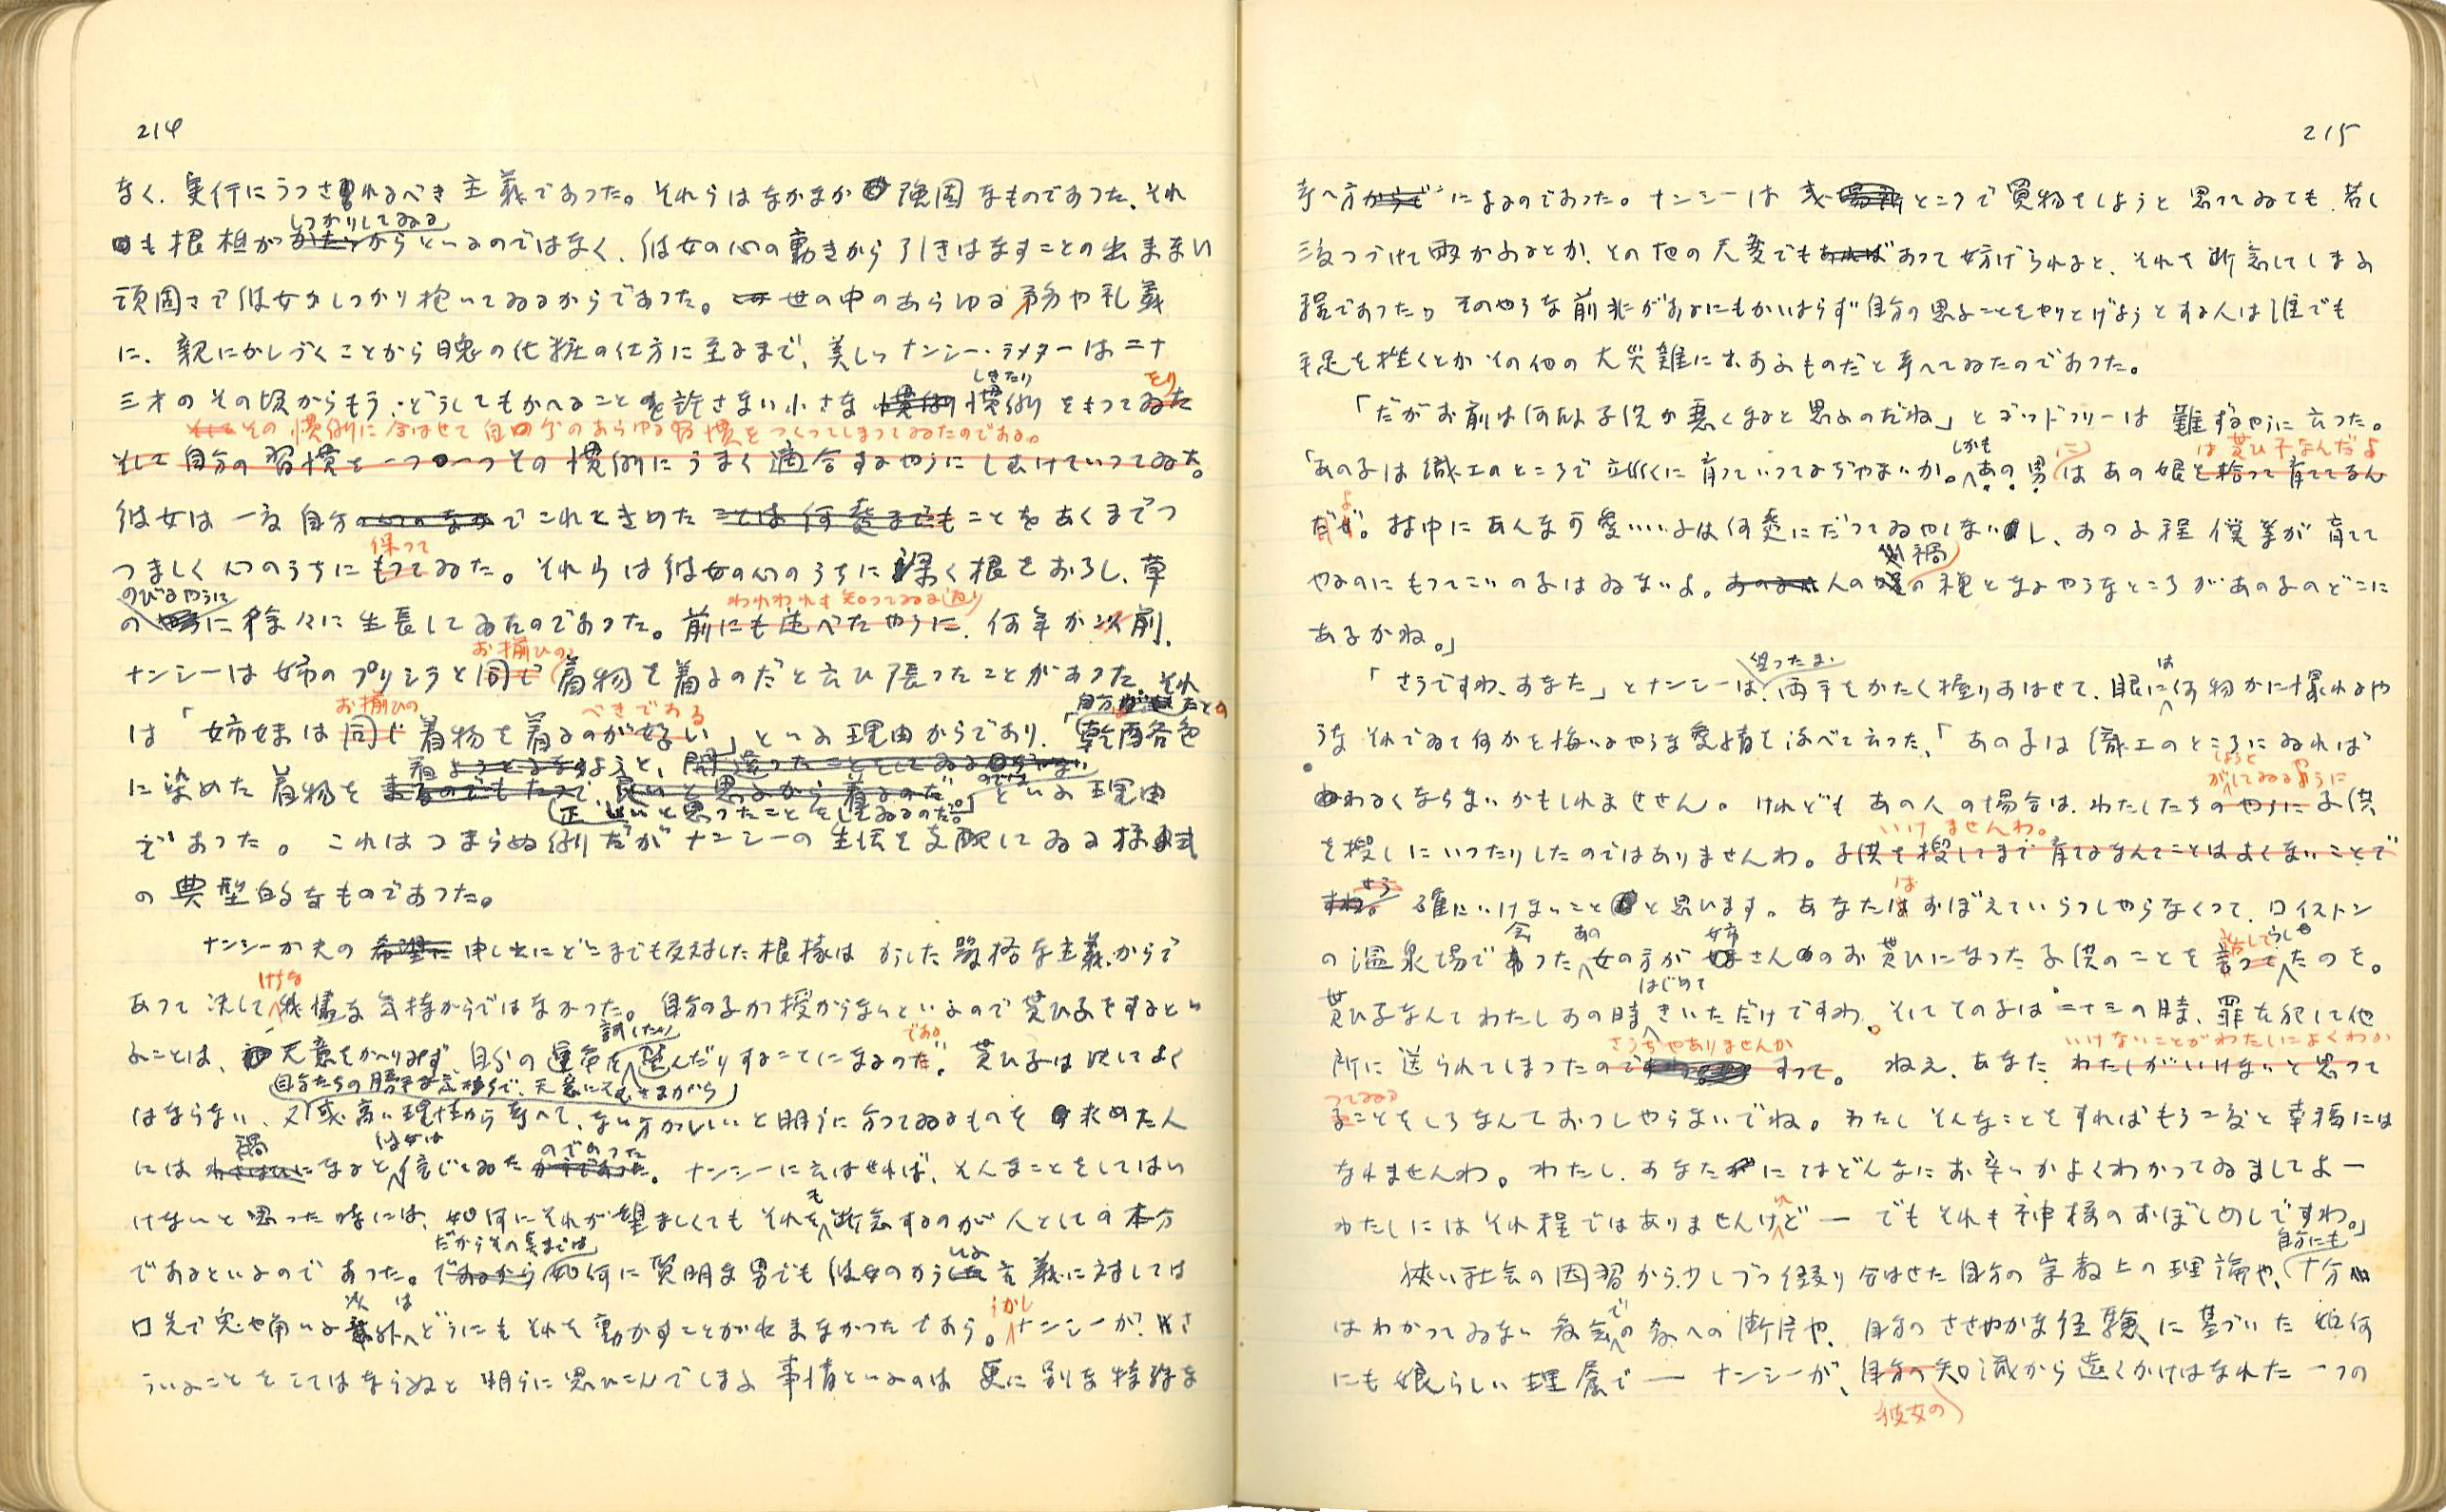 214
なく、実行にうつさるべき主義であつた。それらはなかなか強固なものであつた、それ
しつかりしてゐる
も根柢がかたいからといふのではなく、彼女の心の動きから引きはなすことの出来ない
頑固さで彼女がしつかり抱いてゐるからであつた。世の中のあらゆる義務や礼義
に、親にかしづくことから晩の化粧の仕方に至るまで、美しいナンシー・ラメターは二十
しきたり
をり
三才のその頃からもう、どうしてもかへることを許さない小さな慣例をもつてゐた
その慣例に合はせて自分のあらゆる習慣をつくつてしまつてゐたのである。
そして自分の習慣を一つ一つその慣例にうまく適合するやうにしむけていつてゐた。
彼女は一度自分でこれときめたことをあくまでつ
保つて
つましく心のうちにもつてゐた。それらは彼女の心のうちに深く根をおろし、草
のびるやうに
われわれも知つてゐる通り
の に徐々に生長してゐたのであつた。前にも述べたやうに、何年か以前、
お揃ひの
ナンシーは姉のプリシラと同じ着物を着るのだと云ひ張つたことがあつた それ
お揃ひの
べきである
自分が たとの
は「姉妹は同じ着物を着るのが好い」といふ理由からであり、「乾酪各色
着ようと、間違つたことをしてゐる
に染めた着物を 良いと思ふから着るのだ といふ理由
正しいと思つたことを してゐるのだ。」
であつた。これはつまらぬ例だがナンシーの生活を支配してゐる様式
の典型的なものであつた。
ナンシーが夫の希望に申し出にどこまでも反対した根拠はかうした厳格な主義からで
けちな
あつて決して な気持からではなかつた。自分の子が授からないといふので貰ひ子をするとい
試したり
である
ふことは、天意をかへりみず、自分の運命を選んだりすることになるのだ。貰ひ子は決してよく
自分たちの勝手な気持ちで、天意にそむきながら
はならない、又或高い理性から考へて、ない方がいいと明らかに分つてゐるものを求めた人
禍
彼女は
のであつた
には になると信じてゐた 。ナンシーに云はせれば、そんなことをしてはい
も
けないと思つた時には、如何にそれが望ましくてもそれを断念するのが人としての本分
だからその点までは
であるといふのであつた。であるから如何に賢明な男でも彼女のかうした主義に対しては
は
うかし
口先で より外へどうにもそれを動かすことが出来なかつたであらう。ナンシーが、さ
ういふことをしてはならぬと明らかに思ひこんでしまふ事情といふのは更に別な特殊な
215
考へ方からに よるのであつた。ナンシーは或 ところで買物をしようと思つてゐても、若し
三度つづけて雨がふるとか、その他の天変でもあつて妨げられると、それを断念してしまふ
程であつた。そのやうな前兆があるにもかゝはらず自分の思ふことをやりとげようとする人は誰でも
手足を挫くとかその他の大災難にあふものだと考へてゐたのであつた。
「だがお前は何故子供が悪くなると思ふのだね」とゴッドフリーは難ずるやうに云つた。
しかも
に
は貰ひ子なんだよ
「あの子は織工のところで立派に育つていつてるぢやないか。あの男はあの娘を拾つて育ててるん
よ
だぜ。村中にあんな可愛いゝ子は何処にだつてゐやしないし、あの子程僕等が育てて
禍
やるのにもつてこいの子はゐないよ。人の の種となるやうなところがあの子のどこに
あるかね。」
組つたまゝ
は
「さうですわ、あなた」とナンシーは、両手をかたく握りあはせて、眼に何物かに憧れるや
うなそれでゐて何かを悔いるやうな愛情を浮べて云つた、「あの子は織工のところにゐれば
しようと
がしてゐるやうに
わるくならないかもしれませせん。けれどもあの人の場合は、わたしたちのやうに子供
いけませんわ。
を探しにいつたりしたのではありませんわ。子供を探してまで育てるなんてことはよくないことで
せう
は
すわ。確にいけないことと思います。あなたはおぼえていらつしやらなくつて、ロイストン
会
あの
姉
話してらしや
の温泉場で会つた女の方が姉さんのお貰ひになつた子供のことを言つてたのを。
はじめて
貰ひ子なんてわたしあの時きいただけですわ。そしてその子は二十三の時、罪を犯して他
さうぢやありませんか
いけないことがわたしによくわか
所に送られてしまつたので すつて。ねえ、あなた、わたしがいけないと思つて
つてゐる
ることをしろなんておつしやらないでね。わたしそんなことをすればもう二度と幸福には
なれませんわ。わたし、あなたにはどんなにお辛いかよくわかつてゐましてよ―
れ
わたしにはそれ程ではありませんけど―でもそれも神様のおぼしめしですわ。」
自分にも
狭い社会の因習から少しづつ綴り合はせた自分の宗教上の理論や、十分
で
はわかつてゐない教会の教への断片や、自分のささやかな経験に基づいた如何
にも娘らしい理屈で―ナンシーが、自分の知識から遠くかけはなれた一つの
彼女の